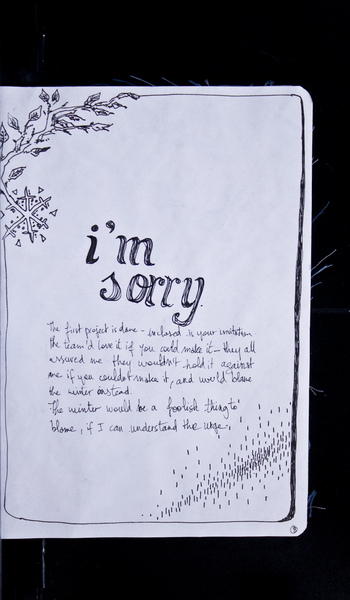 i'm
sorry.
The first project is done - enclosed is your invitation
the team'd love it if you could make it - they all
assured me they wouldn't hold it against
me if you couldn't make it, and would blame
the winter instead.
The winter would be a foolish thing to
blame, if I can understand the urge.